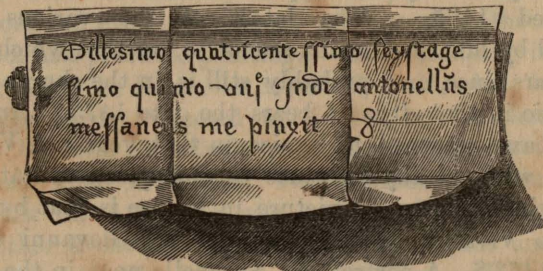 Millesimo quatricentessimo seystage
simo quinto viiiᵉ Indi antonellus
messaneus me pinxit